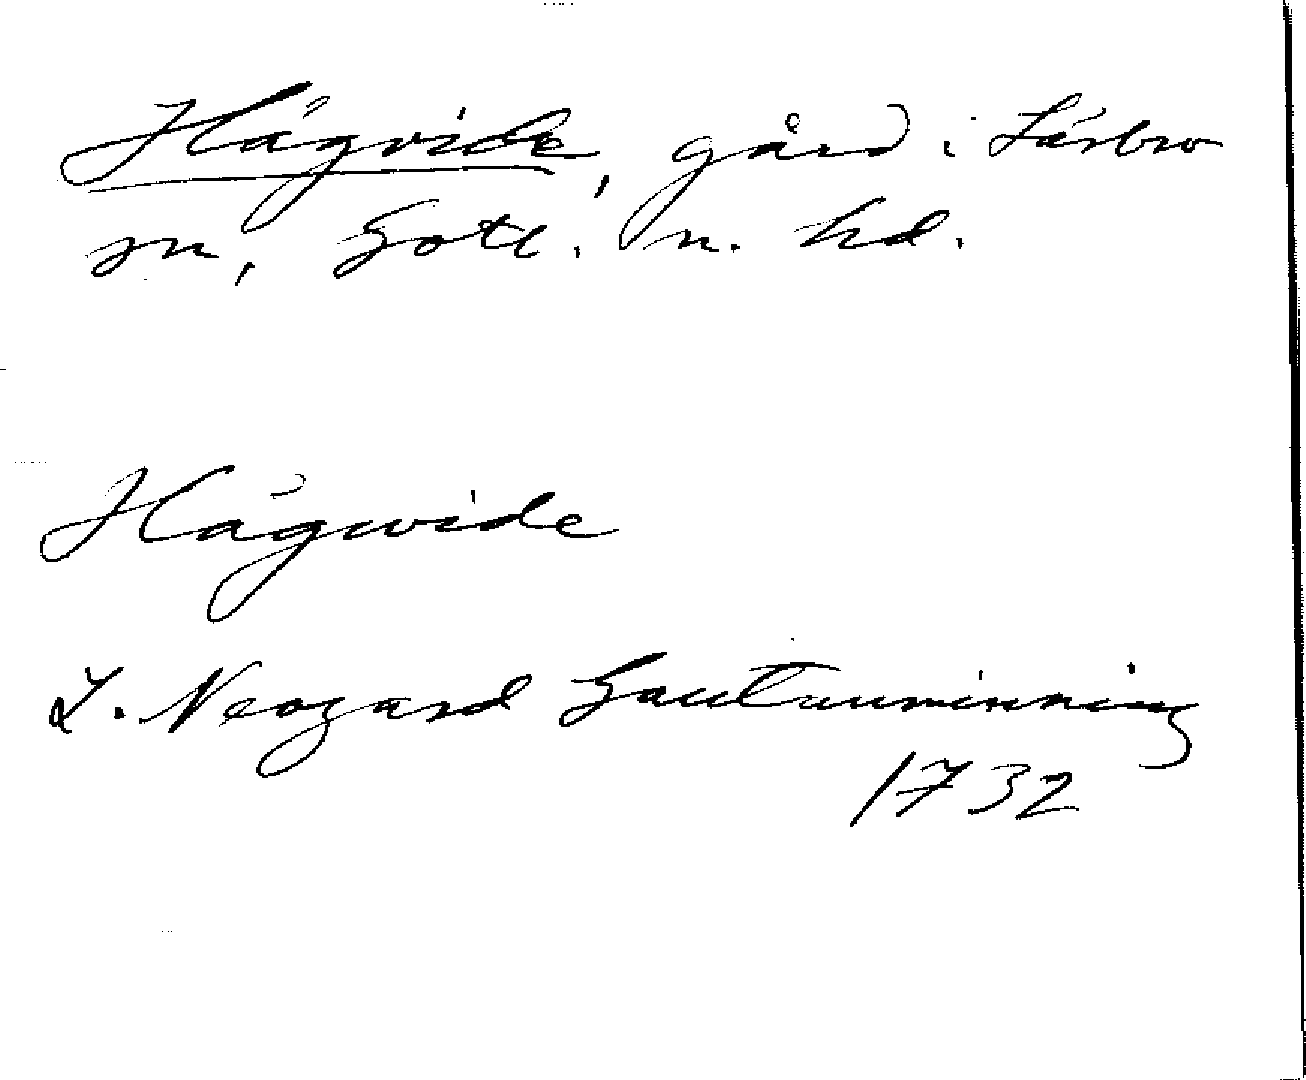 Hägvide, gård i Lärbro
sn, Gotl. n. hd.
Hägwide
L. Neogard Gautauminning
1732